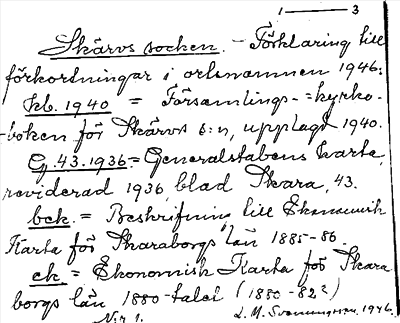 1 — 3
Skärvs socken. - Förklaring till
förkortningar i ortsnamnen 1946:
kb. 1940 = Församlings-=kyrko-
boken för Skärvs s:n, upplagt 1940.
G. 43. 1936 = Generalstabens karta,
reviderad 1936, blad Skara, 43.
bek. = Beskrifning till Ekonomisk
Karta för Skaraborgs län 1885-86.
ek = Ekonomisk Karta för Skara
borgs län 1880-talet (1880-82?)
N:r 1. L. M. Svenungsson. 1946.